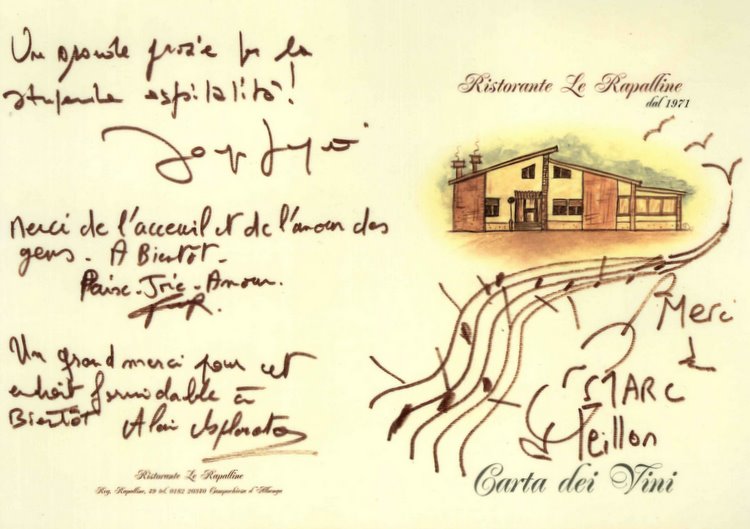 Un grande grazie per la
stupenda ospitalità!
Merci de l'acceuil et de l'amour des
gens - A Bientôt -
Paix - Joie - Amour.
Un grand merci pour cet
endroit formidable à
Bientôt Alain
Ristorante Le Rapalline
Reg. Rapalline, 49 tel. 0182 20340 Campochiesa d'Albenga
Ristorante Le Rapalline
dal 1971
Merci
MARC
Peillon
Carta dei Vini